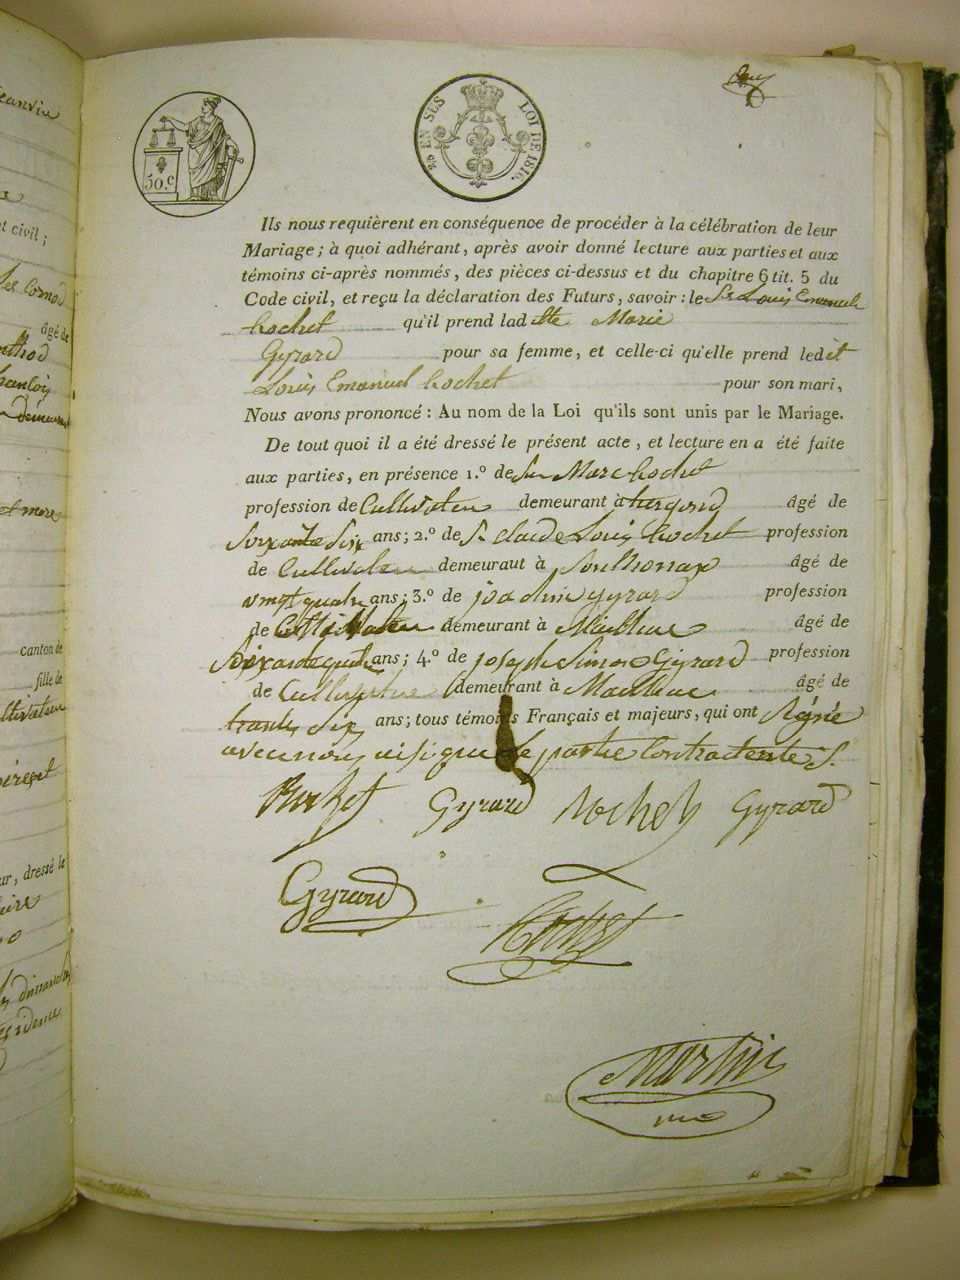 eanvie
et civil ;
âgé de
demeur
canton de
fille de
ultivateur
ur, dressé le
aire
50.c
25 EN SUS
LOI DE 1816.
Ils nous requièrent en conséquence de procéder à la célébration de leur
Mariage ; à quoi adhérant, après avoir donné lecture aux parties et aux
témoins ci-après nommés, des pièces ci-dessus et du chapitre 6 tit. 5 du
Code civil, et reçu la déclaration des Futurs, savoir : le Sr Louis Emanuel
Rochet qu'il prend laditte Marie
Gyrard pour sa femme, et celle-ci qu'elle prend ledit
Louis Emanuel Rochet pour son mari,
Nous avons prononcé : Au nom de la Loi qu'ils sont unis par le Mariage.
De tout quoi il a été dressé le présent acte, et lecture en a été faite
aux parties, en présence 1.º de Sr Marc Rochet
profession de Cultivateur demeurant à âgé de
Soixante Six ans ; 2.º de Sr claude Louis Rochet profession
de Cultivateur demeuraut à Soulhonax âgé de
vingt quatre ans ; 3.º de joachim gyrard profession
de Cultivateur demeurant à âgé de
Soixante quatre ans ; 4.º de joseph Simon Gyrard profession
de Cultivateur demeurant à âgé de
trante Six ans ; tous témoins Français et majeurs, qui ont Signé
avec nous ainsi que le partie Contractente S.
Rochet Gyrard Rochet Gyrard
Gyrard
Rochet
Martin